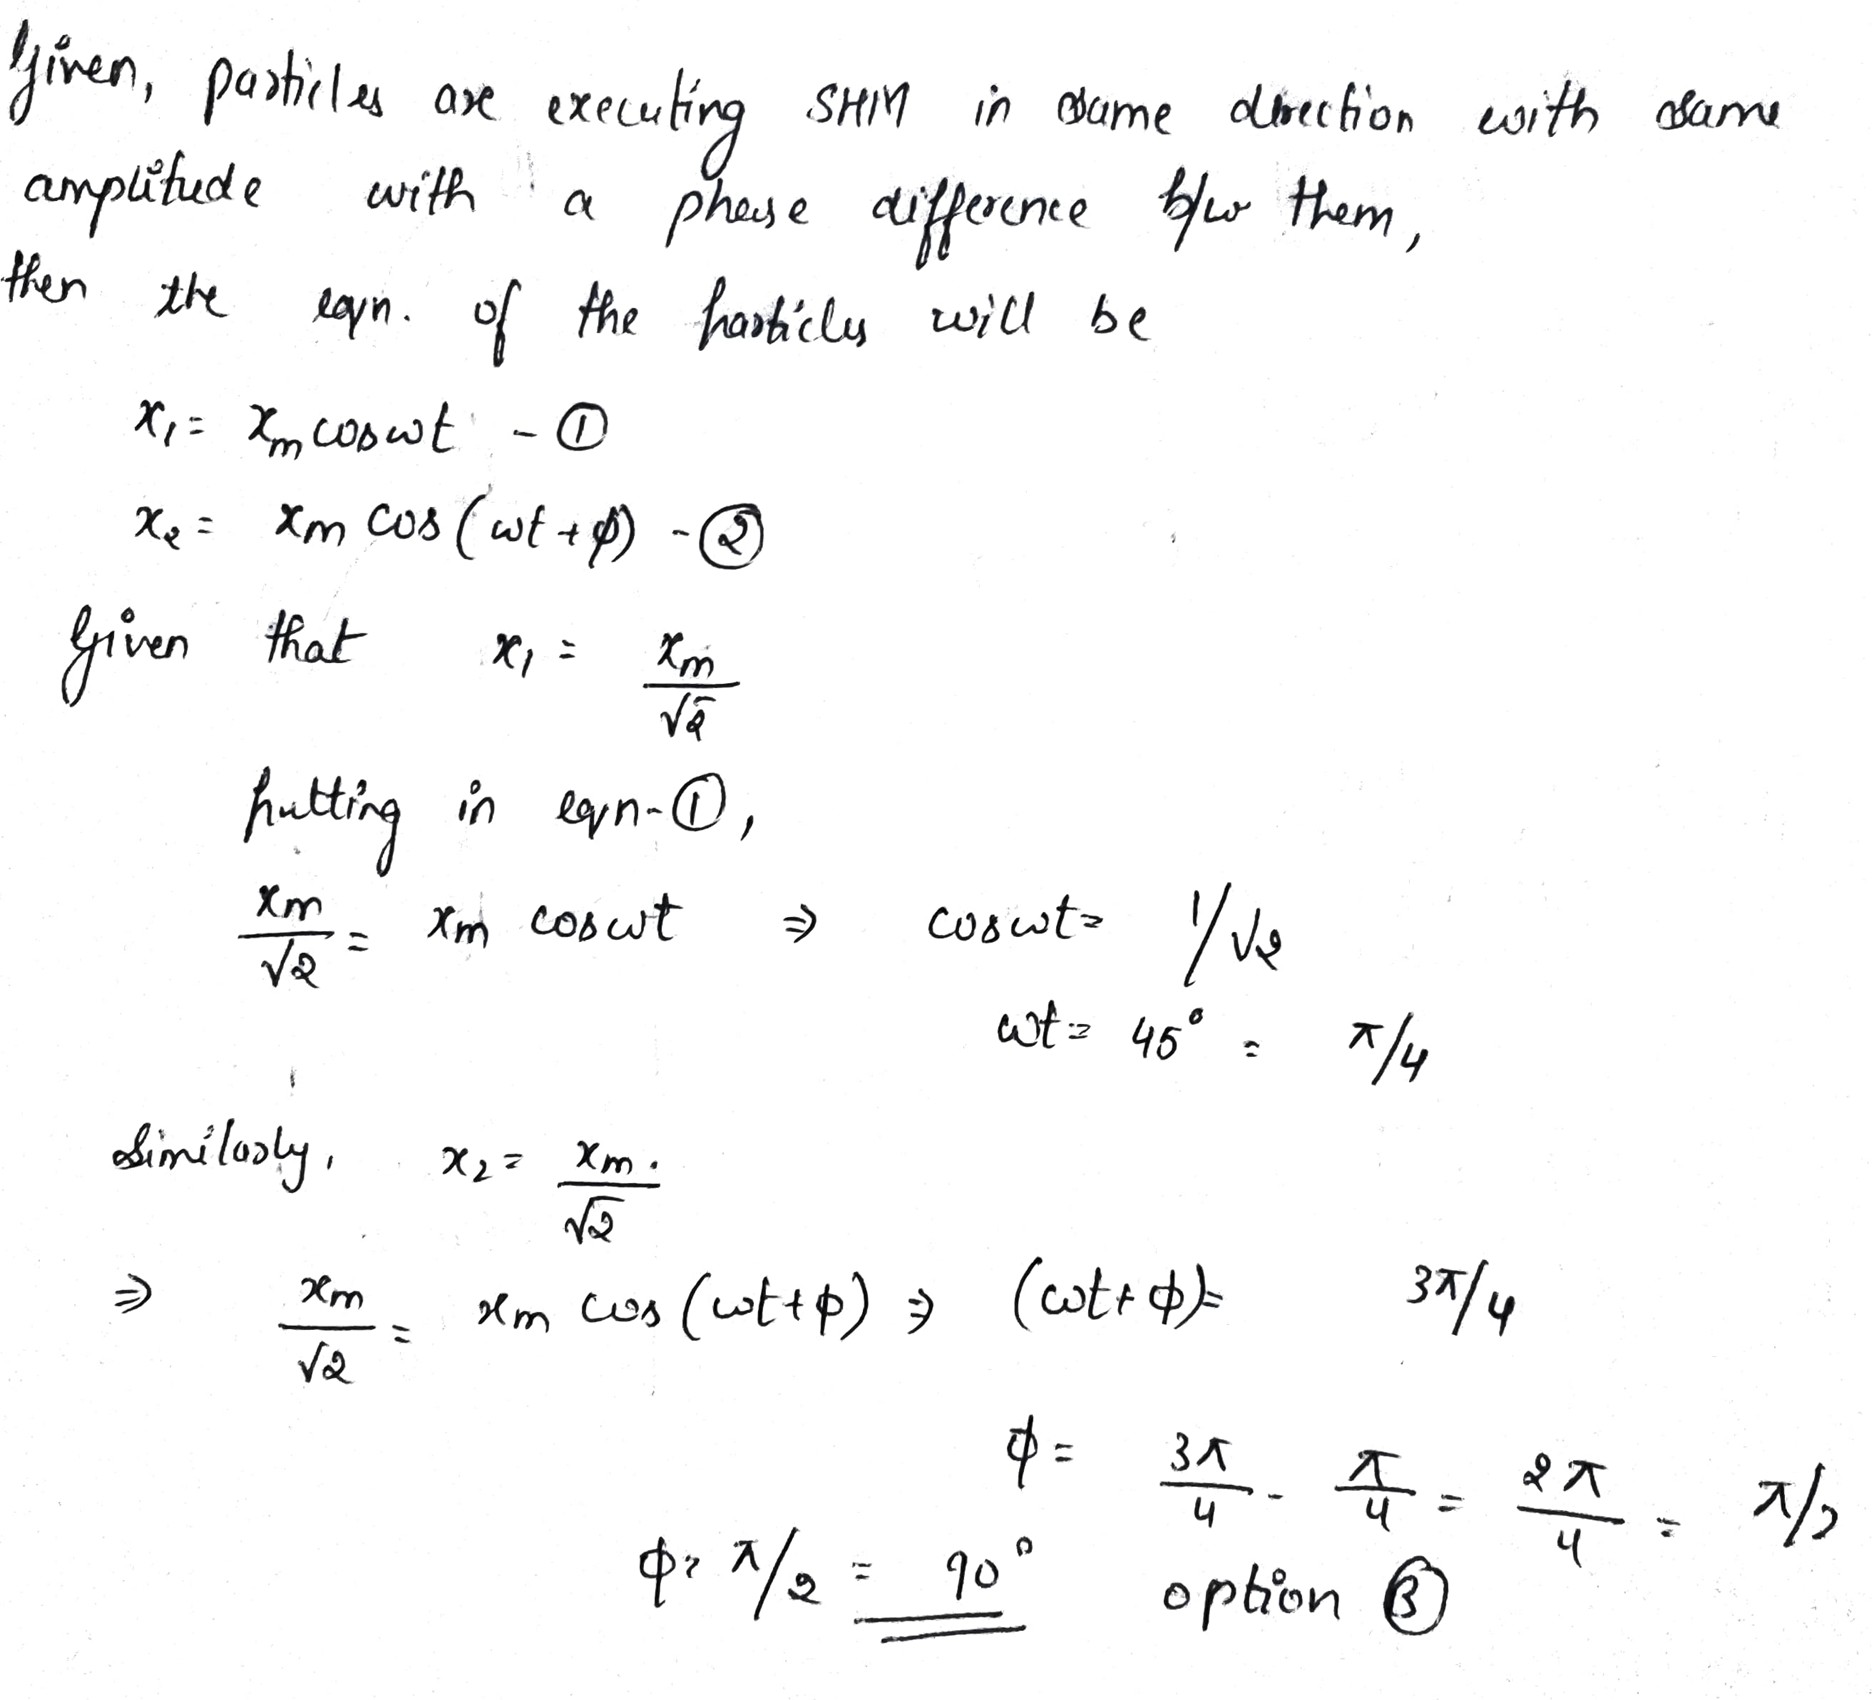 Given, particles are executing SHM in same direction with same
amplitude with a phase difference b/w them,
then the eqn. of the particles will be
x₁ = xₘ cos ωt - ①
x₂ = xₘ cos (ωt + ϕ) - ②
Given that x₁ = xₘ/√2
putting in eqn-①,
xₘ/√2 = xₘ cos ωt ⇒ cos ωt = 1/√2
ωt = 45° = π/4
Similarly, x₂ = xₘ/√2
⇒ xₘ/√2 = xₘ cos (ωt + ϕ) ⇒ (ωt + ϕ) = 3π/4
ϕ = 3π/4 - π/4 = 2π/4 = π/2
ϕ = π/2 = 90° option Ⓑ